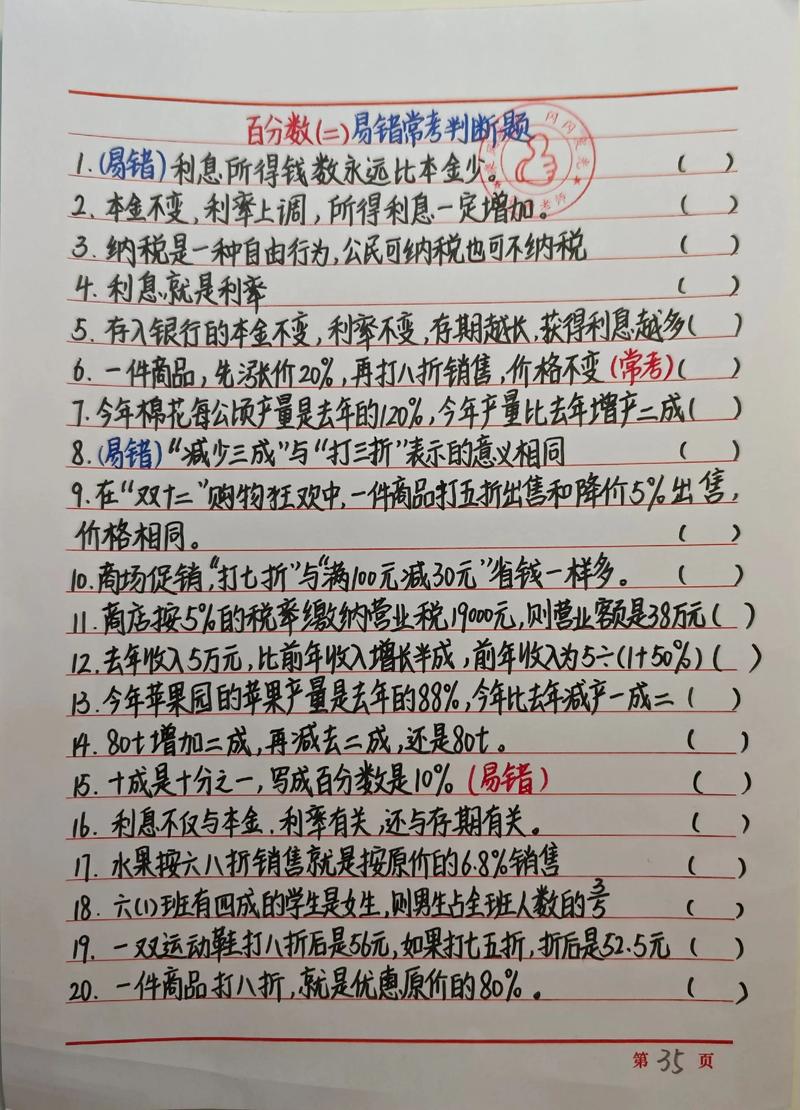 百分数(二)易错常考判断题
1.(易错)利息所得钱数永远比本金少。 ( )
2. 本金不变,利率上调,所得利息一定增加。 ( )
3. 纳税是一种自由行为,公民可纳税也可不纳税 ( )
4. 利息就是利率 ( )
5. 存入银行的本金不变,利率不变,存期越长,获得利息越多( )
6. 一件商品,先涨价20%,再打八折销售,价格不变(常考)( )
7.今年棉花每公顷产量是去年的120%,今年产量比去年增产二成( )
8.(易错)“减少三成”与“打三折”表示的意义相同 ( )
9.在“双十二”购物狂欢中,一件商品打五折出售和降价5%出售,
价格相同。 ( )
10.商场促销,“打七折”与“满100元减30元”省钱一样多。 ( )
11.商店按5%的税率缴纳营业税19000元,则营业额是38万元( )
12.去年收入5万元,比前年收入增长半成,前年收入为5÷(1+50%)( )
13.今年苹果园的苹果产量是去年的88%,今年比去年减产一成二 ( )
14. 80t增加二成,再减去二成,还是80t。 ( )
15. 十成是十分之一,写成百分数是10% (易错) ( )
16. 利息不仅与本金.利率有关,还与存期有关。 ( )
17. 水果按六八折销售就是按原价的6.8%销售 ( )
18. 六(1)班有四成的学生是女生,则男生占全班人数的3/5 ( )
19. 一双运动鞋打八折后是56元,如果打七五折,折后是52.5元 ( )
20. 一件商品打八折,就是优惠原价的80%。 ( )
第 35 页